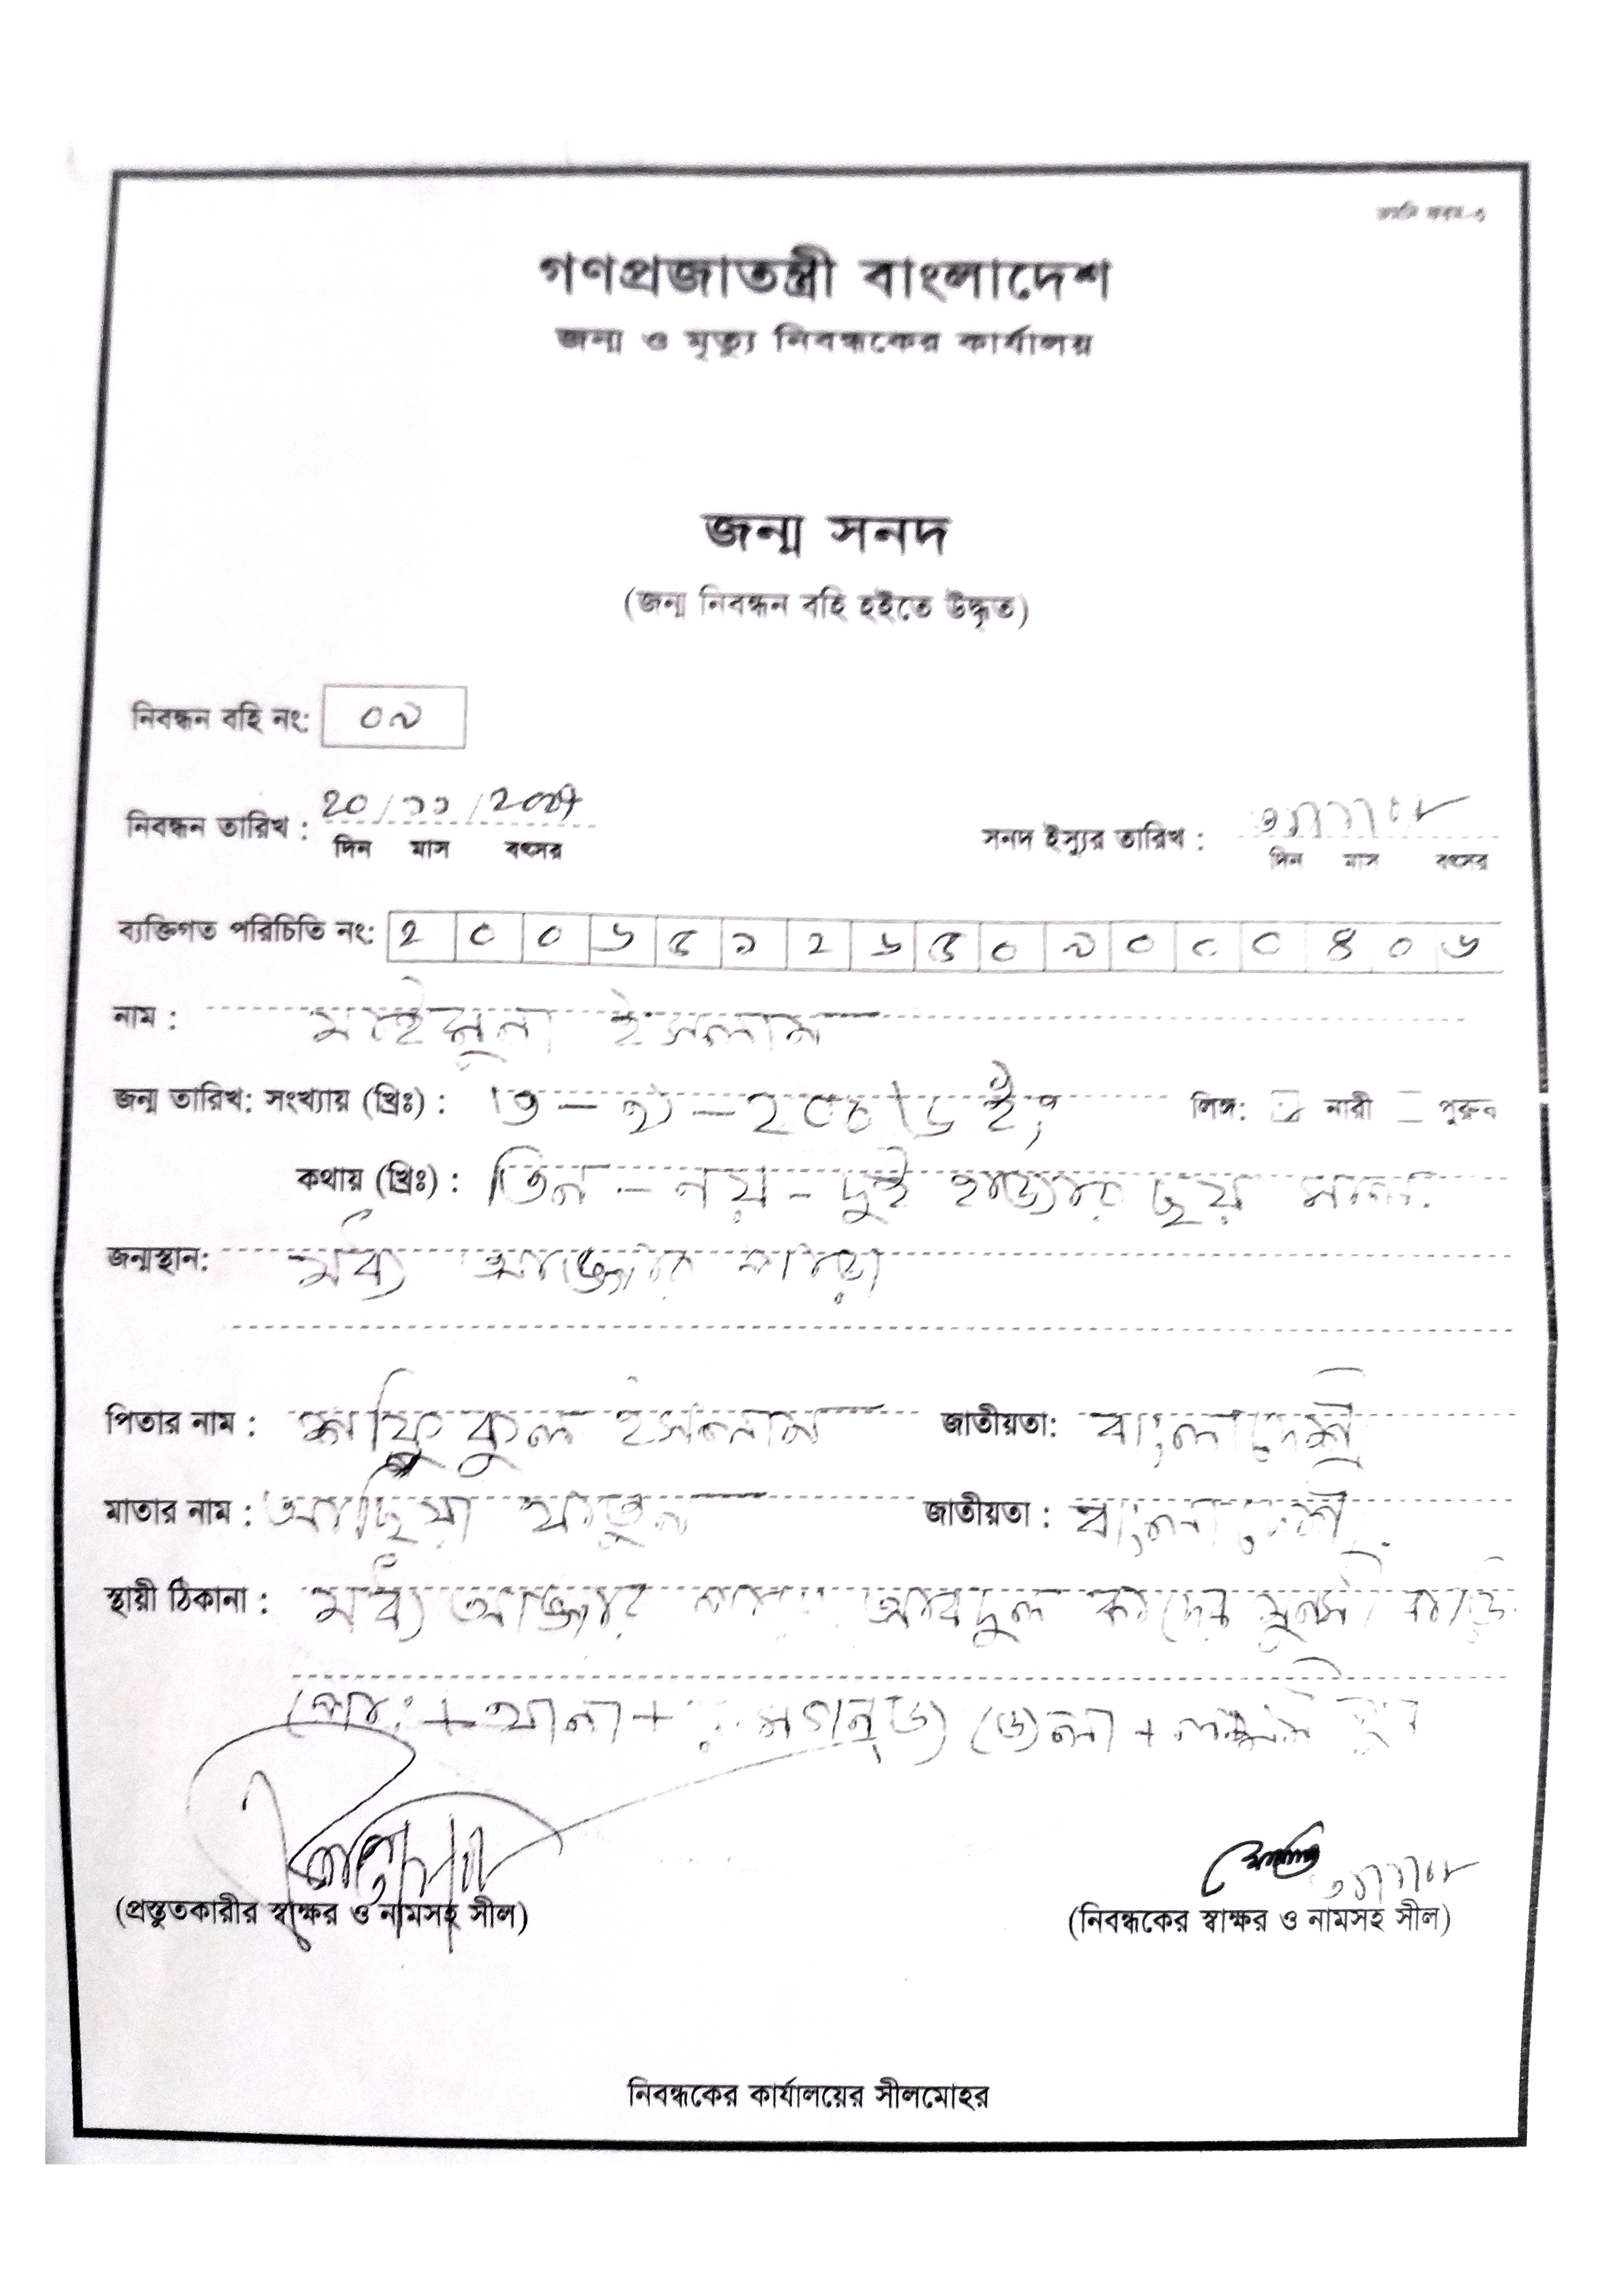 গণপ্রজাতন্ত্রী বাংলাদেশ
জন্ম ও মৃত্যু নিবন্ধকের কার্যালয়
জন্ম সনদ
(জন্ম নিবন্ধন বহি হইতে উদ্ধৃত)
নিবন্ধন বহি নং: ০৯
নিবন্ধন তারিখ : ২০/১১/২০০৭ সনদ ইস্যুর তারিখ :
দিন মাস বৎসর দিন মাস বৎসর
ব্যক্তিগত পরিচিতি নং: ২ ০ ০ ৬ ৫ ১ ২ ৬ ৫ ০ ৯ ০ ০ ০ ৪ ০ ৬
নাম : মাইমুনা ইসলাম
জন্ম তারিখ: সংখ্যায় (খ্রিঃ) : ৩ - ৯ - ২০০৬ ইং লিঙ্গ: নারী পুরুষ
কথায় (খ্রিঃ) : তিন - নয় - দুই হাজার ছয় সাল
জন্মস্থান: মধ্য
পিতার নাম : শফিকুল ইসলাম জাতীয়তা: বাংলাদেশী
মাতার নাম : আছিয়া খাতুন জাতীয়তা : বাংলাদেশী
স্থায়ী ঠিকানা : মধ্য আবদুল কাদের মুনসী বাড়ি
পোঃ+থানা+
(প্রস্তুতকারীর স্বাক্ষর ও নামসহ সীল) (নিবন্ধকের স্বাক্ষর ও নামসহ সীল)
নিবন্ধকের কার্যালয়ের সীলমোহর